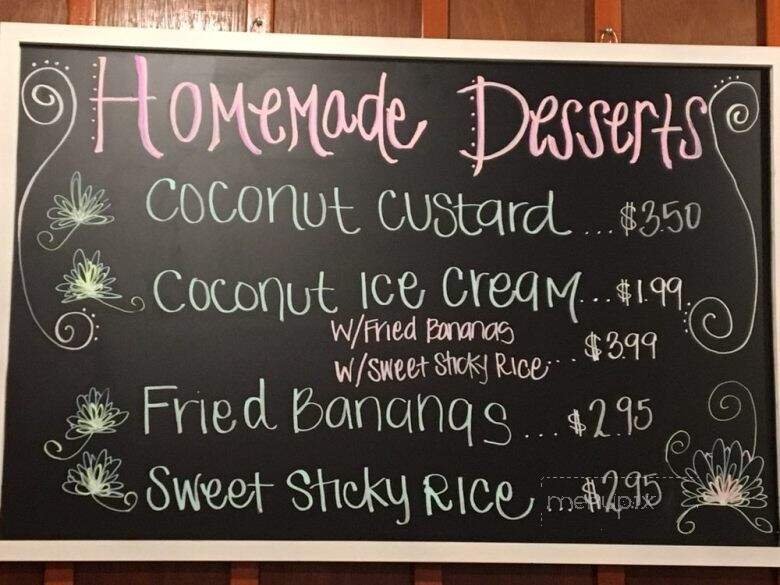 Homemade Desserts
Coconut Custard ... $3.50
Coconut Ice Cream... $1.99
W/Fried Bananas
W/Sweet Sticky Rice... $3.99
Fried Bananas ... $2.95
Sweet Sticky Rice ... $2.95
menupix